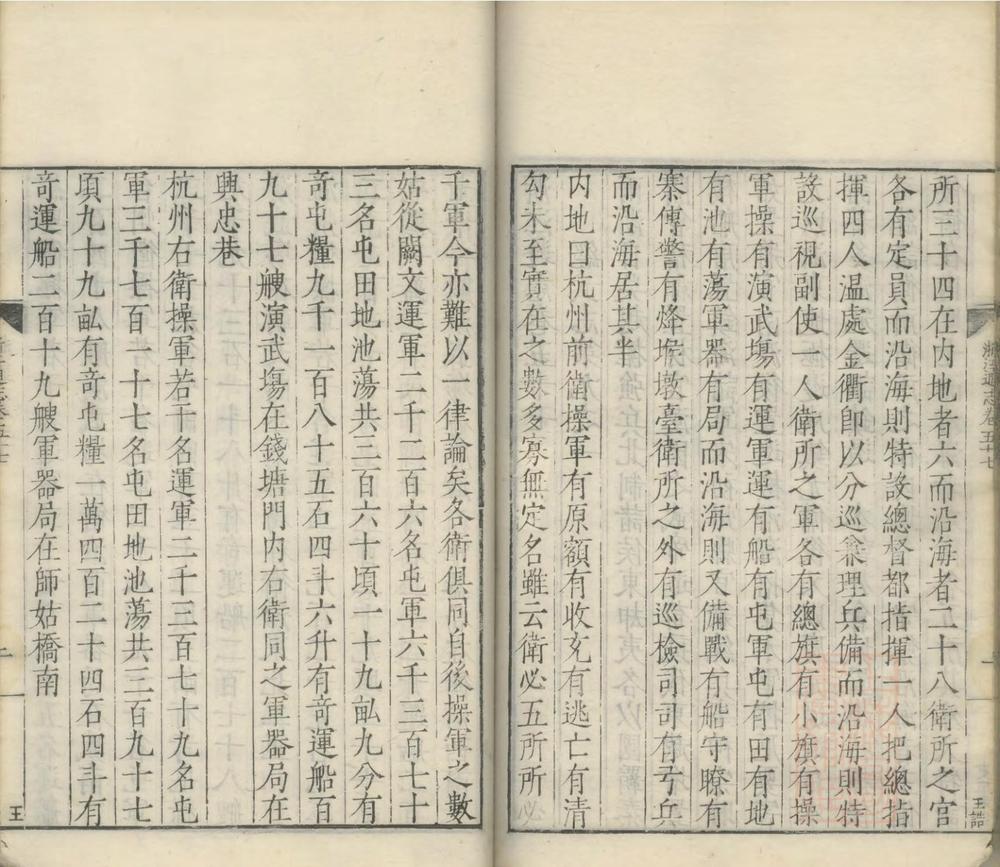 所三十四在内地者六而沿海者二十八衛所之官
各有定員而沿海則特設總督都指揮一人把總指
揮四人温處金衢卽以分巡兼理兵備而沿海則特
設巡視副使一人衛所之軍各有總旗有小旗有操
軍操有演武塲有運軍運有船有屯軍屯有田有地
有池有蕩軍器有局而沿海則又備戰有船守瞭有
寨傳警有烽堠墩臺衛所之外有巡檢司司有弓兵
而沿海居其半
内地曰杭州前衛操軍有原額有收充有逃亡有清
勾未至實在之數多寡無定名雖云衛必五所所必
千軍今亦難以一律論矣各衛俱同自後操軍之數
姑從闕文運軍二千二百六名屯軍六千三百七十
三名屯田地池蕩共三百六十頃一十九畝九分有
竒屯糧九千一百八十五石四斗六升有竒運船百
九十七艘演武塲在錢塘門内右衛同之軍器局在
興忠巷
杭州右衛操軍若干名運軍二千三百七十九名屯
軍三千七百一十七名屯田地池蕩共三百九十七
頃九十九畝有竒屯糧一萬四百二十四石四斗有
竒運船二百十九艘軍器局在師姑橋南
浙江通志卷五十七
一
王誥
王